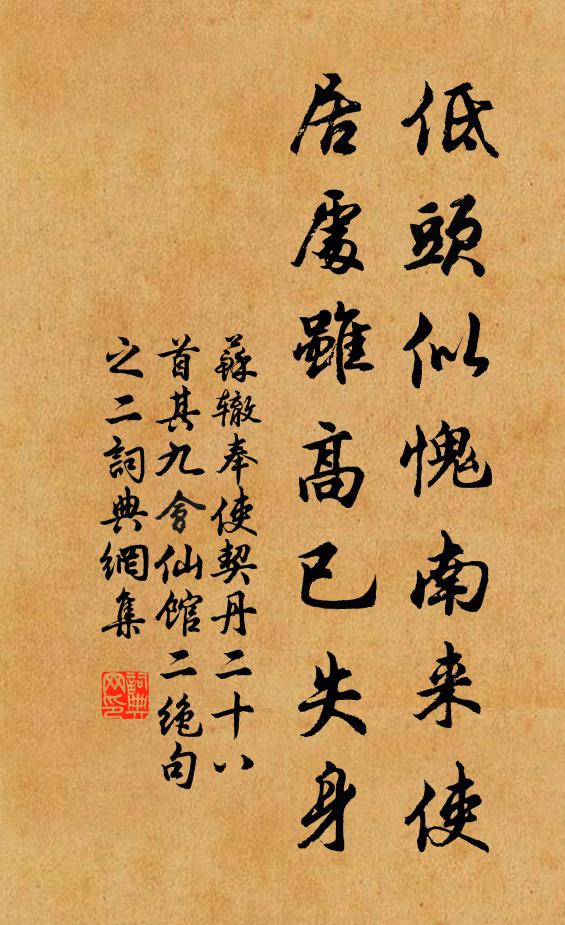 低頭似愧南来使
居處雖高已失身
蘇辙奉使契丹二十八
首其九會仙館二絶句
之二詞典網集
詞典网印